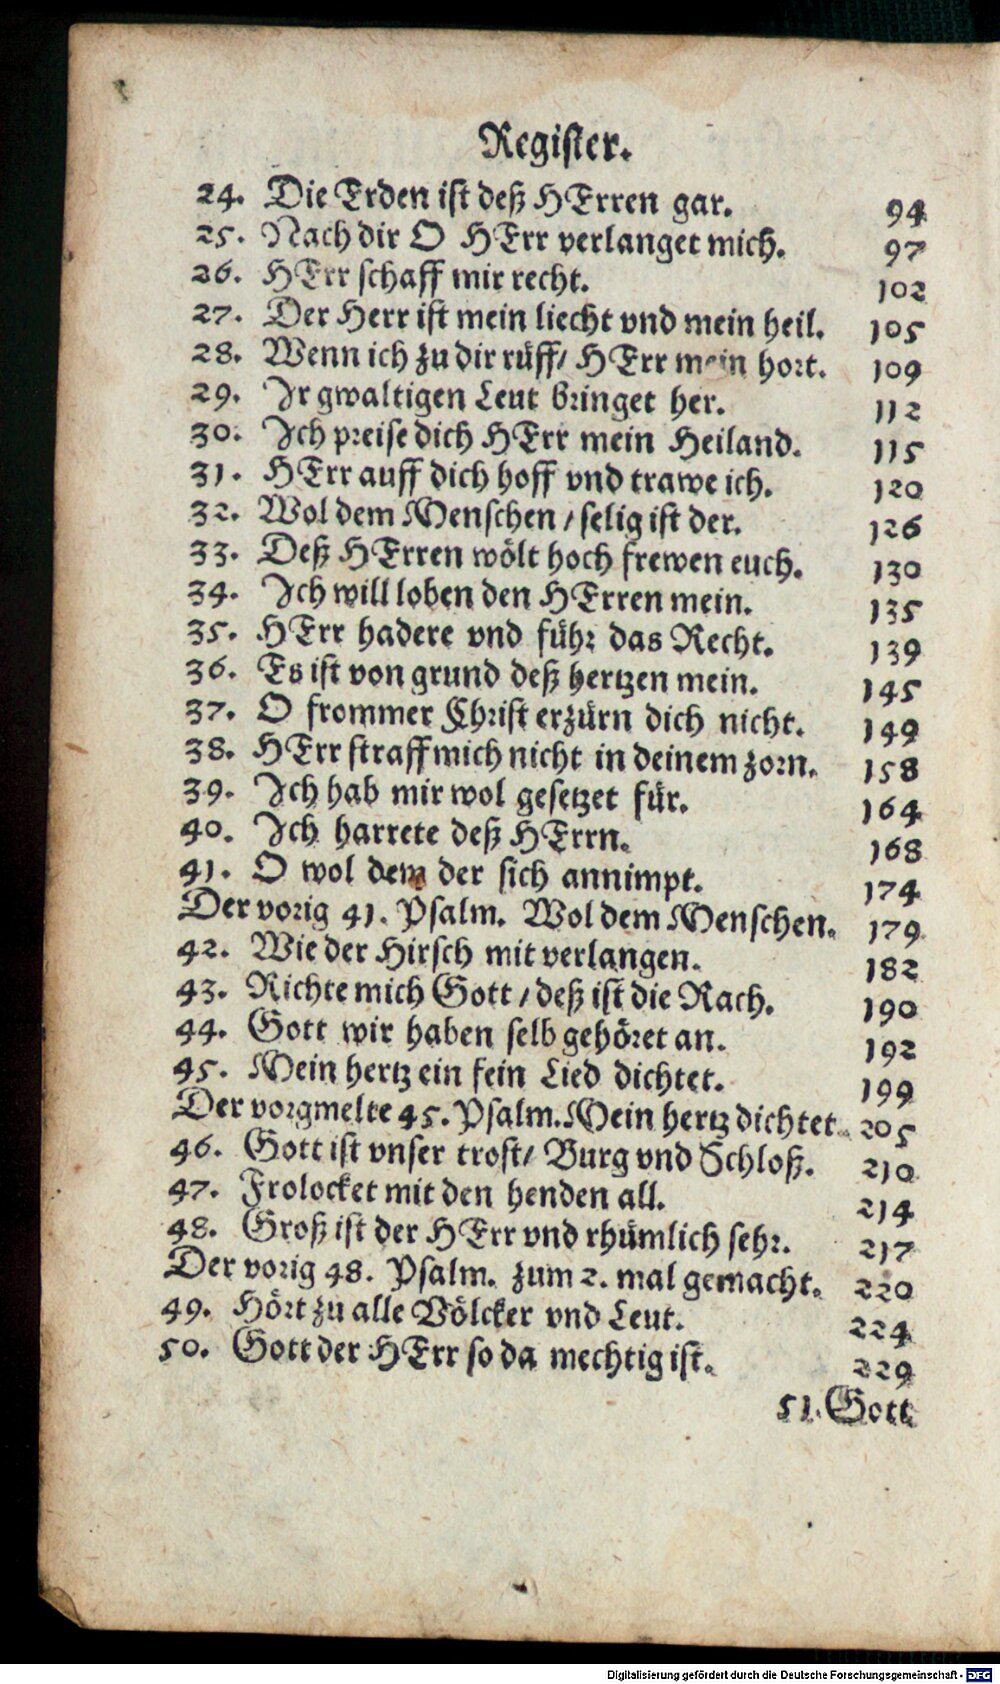 Register.
24. Die Erden ist deß HErren gar. 94
25. Nach dir O HErr verlanget mich. 97
26. HErr schaff mir recht. 102
27. Der Herr ist mein liecht vnd mein heil. 105
28. Wenn ich zu dir rüff/ HErr mein hort. 109
29. Ir gwaltigen Leut bringet her. 112
30. Ich preise dich HErr mein Heiland. 115
31. HErr auff dich hoff vnd trawe ich. 120
32. Wol dem Menschen / selig ist der. 126
33. Deß HErren wölt hoch frewen euch. 130
34. Ich will loben den HErren mein. 135
35. HErr hadere vnd führ das Recht. 139
36. Es ist von grund deß hertzen mein. 145
37. O frommer Christ erzürn dich nicht. 149
38. HErr straff mich nicht in deinem zorn. 158
39. Ich hab mir wol gesetzet für. 164
40. Ich harrete deß HErrn. 168
41. O wol dem der sich annimpt. 174
Der vorig 41. Psalm. Wol dem Menschen. 179
42. Wie der Hirsch mit verlangen. 182
43. Richte mich Gott / deß ist die Rach. 190
44. Gott wir haben selb gehöret an. 192
45. Mein hertz ein fein Lied dichtet. 199
Der vorgmelte 45. Psalm. Mein hertz dichtet. 205
46. Gott ist vnser trost/ Burg vnd Schloß. 210
47. Frolocket mit den henden all. 214
48. Groß ist der HErr vnd rhümlich sehr. 217
Der vorig 48. Psalm. zum 2. mal gemacht. 220
49. Hört zu alle Völcker vnd Leut. 224
50. Gott der HErr so da mechtig ist. 229
51. Gott
Digitalisierung gefördert durch die Deutsche Forschungsgemeinschaft - DFG